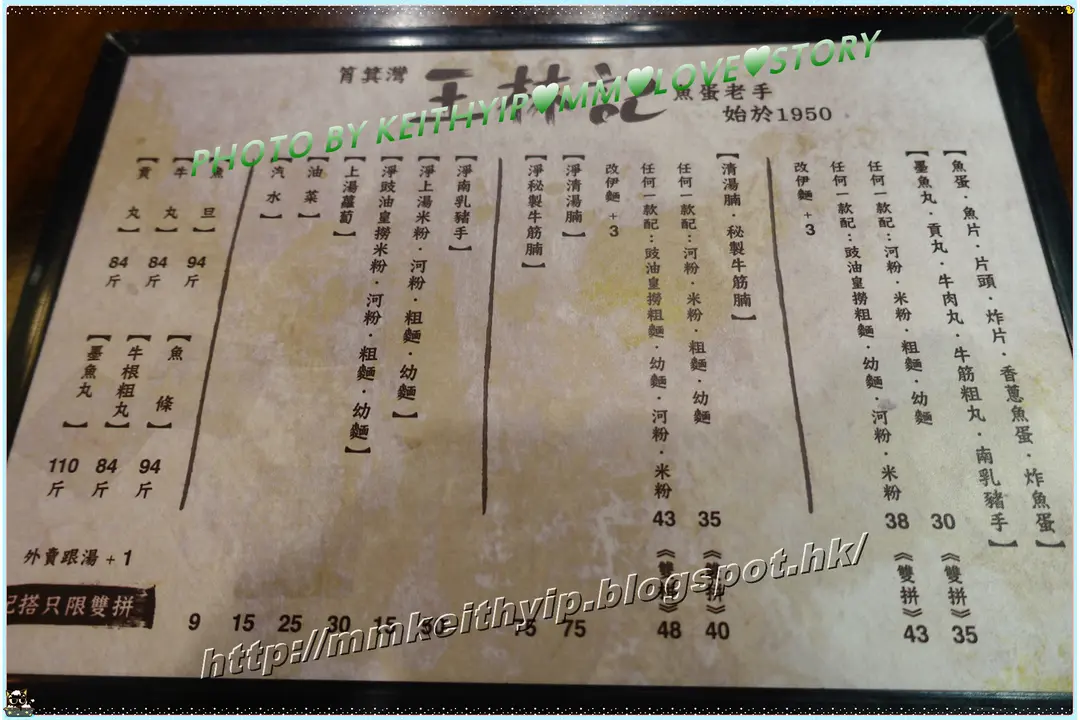 筲箕灣 王林記 魚蛋老手
始於1950
PHOTO BY KEITHYIP♥MM♥LOVE♥STORY
【魚蛋．魚片．片頭．炸片．香蔥魚蛋．炸魚蛋】
【墨魚丸．貢丸．牛肉丸．牛筋粗丸．南乳豬手】
任何一款配：河粉．米粉．粗麵．幼麵 30 《雙拼》 35
任何一款配：豉油皇撈粗麵．幼麵．河粉．米粉 38 《雙拼》 43
改伊麵 +3
【清湯腩．秘製牛筋腩】
任何一款配：河粉．米粉．粗麵．幼麵 35 《雙拼》 40
任何一款配：豉油皇撈粗麵．幼麵．河粉．米粉 43 《雙拼》 48
改伊麵 +3
【淨清湯腩】 75
【淨秘製牛筋腩】
【淨南乳豬手】
【淨上湯米粉．河粉．粗麵．幼麵】 15
【淨豉油皇撈米粉．河粉．粗麵．幼麵】 30
【上湯蘿蔔】 25
【油菜】 15
汽水】 9
旦】 94斤
牛丸】 84斤
貢丸】 84斤
【魚條】 94斤
【牛根粗丸】 84斤
【墨魚丸】 110斤
外賣跟湯 +1
搭只限雙拼
http://mmkeithyip.blogspot.hk/